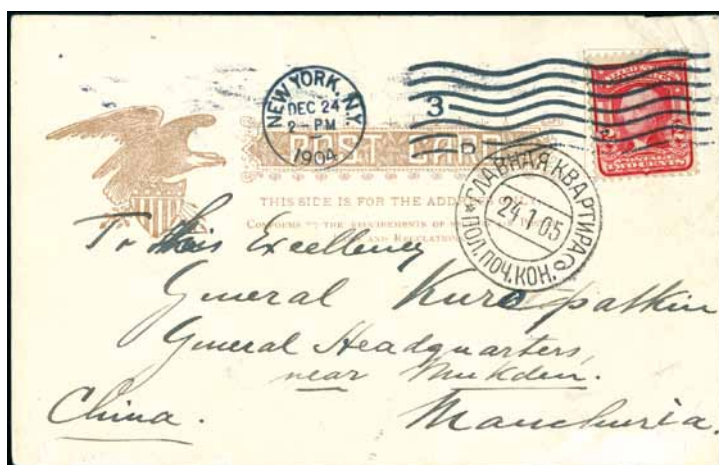 NEW YORK, N.Y.
DEC 24
2-PM
1904
3
POST CARD
THIS SIDE IS FOR THE ADDRESS ONLY.
POSTAGE
TWO CENTS
ГЛАВНАЯ КВАРТИРА
24.1 05
ПОЛ. ПОЧ. КОН.
To His Excellency
General Kuropatkin
General Headquarters,
near Mukden.
China. Manchuria.